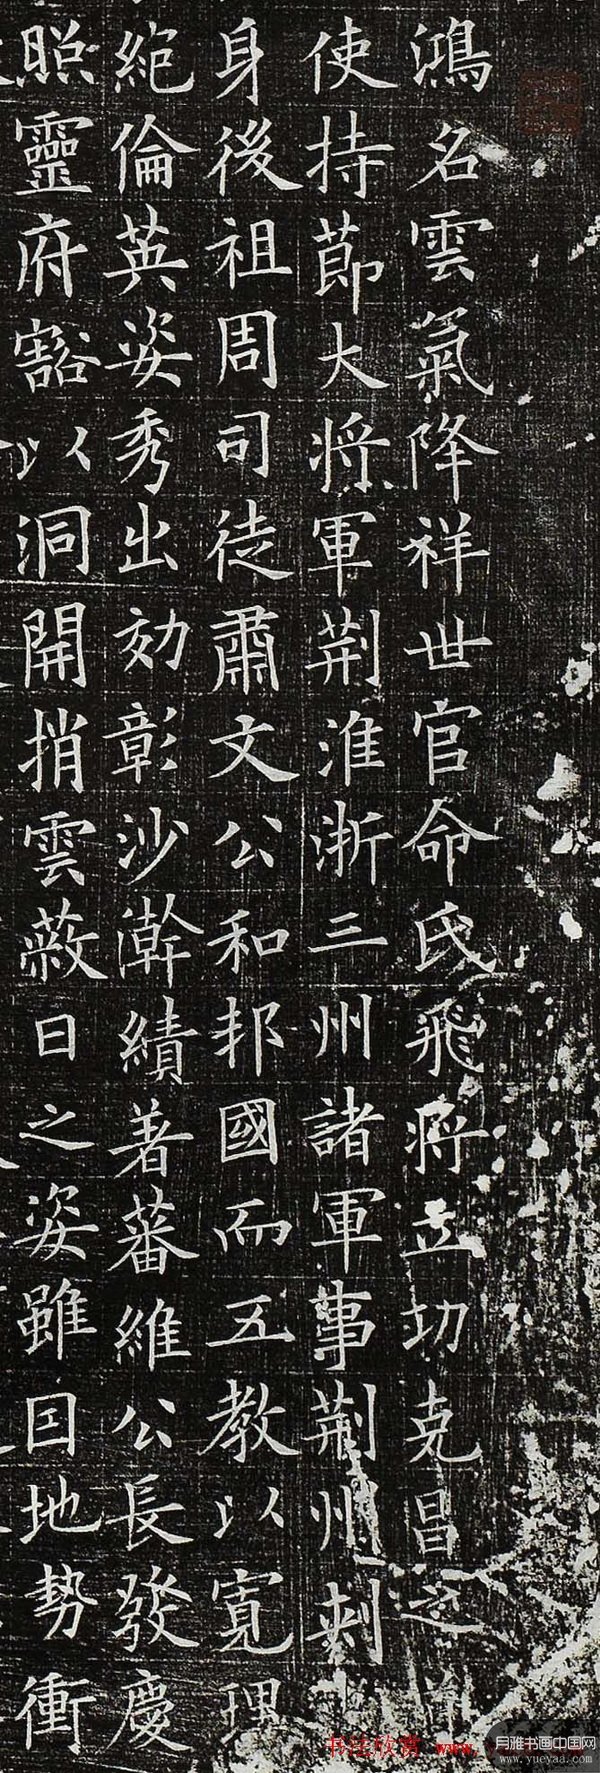 鴻名雲氣降祥世官命氏飛將立功克昌之
使持節大將軍荆淮浙三州諸軍事荆州刺
身後祖周司徒肅文公和邦國而五教以寬理
絕倫英姿秀出効彰沙澣績著蕃維公長發慶
照靈府豁以洞開捎雲蔽日之姿雖因地勢衝
书法欣赏 www.
月雅书画中国网
www.yueyaa.com